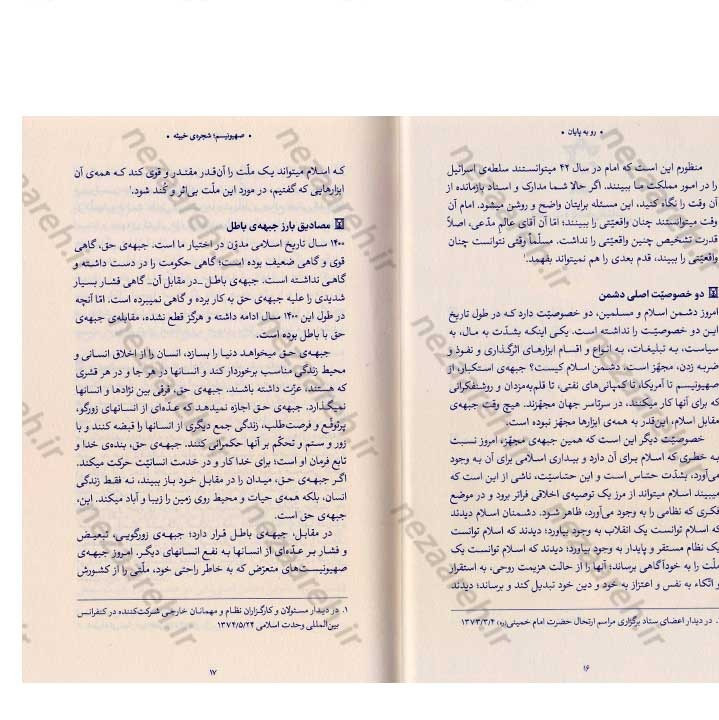 • رو به پایان •
منظورم این است که امام در سال ۴۲ میتوانستند سلطه‌ی اسرائیل
را در امور مملکت ما ببینند. اگر حالا شما مدارک و اسناد بازمانده از
آن وقت را نگاه کنید، این مسئله برایتان واضح و روشن میشود. امام آن
وقت میتوانستند چنان واقعیّتی را ببینند؛ امّا آن آقای عالِم مدّعی، اصلاً
قدرت تشخیص چنین واقعیّتی را نداشت. مسلّماً وقتی نتوانست چنان
واقعیّتی را ببیند، قدم بعدی را هم نمیتواند بفهمد.¹
دو خصوصیّت اصلی دشمن
امروز دشمن اسلام و مسلمین، دو خصوصیّت دارد که در طول تاریخ
این دو خصوصیّت را نداشته است. یکی اینکه بشدّت به مال، به
سیاست، به تبلیغات، به انواع و اقسام ابزارهای اثرگذاری و نفوذ و
ضربه زدن، مجهّز است. دشمن اسلام کیست؟ جبهه‌ی استکبار، از
صهیونیسم تا آمریکا، تا کمپانی‌های نفتی، تا قلم‌به‌مزدان و روشنفکرانی
که برای آنها کار میکنند. در سرتاسر جهان مجهّزند. هیچ وقت جبهه‌ی
مقابل اسلام، این‌قدر به همه‌ی ابزارها مجهّز نبوده است.
خصوصیّت دیگر این است که همین جبهه‌ی مجهّز، امروز نسبت
به خطری که اسلام برای آن دارد و بیداری اسلامی برای آن به وجود
می‌آورد، بشدّت حسّاس است و این حسّاسیّت، ناشی از این است که
میبیند اسلام میتواند از مرز یک توصیه‌ی اخلاقی فراتر برود و در موضع
فکری که نظامی را به وجود می‌آورد، ظاهر شود. دشمنان اسلام دیدند
که اسلام توانست یک انقلاب به وجود بیاورد؛ دیدند که اسلام توانست
یک نظام مستقر و پایدار به وجود بیاورد؛ دیدند که اسلام توانست یک
ملّت را به خودآگاهی برساند؛ آنها را از حالت هزیمت روحی، به استقرار
و اتّکاء به نفس و اعتزاز به خود و دین خود تبدیل کند و برساند؛ دیدند
در دیدار اعضای ستاد برگزاری مراسم ارتحال حضرت امام خمینی(ره) ۱۳۷۳/۳/۴
۱۶
• صهیونیسم؛ شجره‌ی خبیثه •
که اسلام میتواند یک ملّت را آن‌قدر مقتدر و قوی کند که همه‌ی آن
ابزارهایی که گفتیم، در مورد این ملّت بی‌اثر و کُند شود.¹
مصادیق بارز جبهه‌ی باطل
۱۴۰۰ سال تاریخ اسلامی مدوّن در اختیار ما است. جبهه‌ی حق، گاهی
قوی و گاهی ضعیف بوده است؛ گاهی حکومت را در دست داشته و
گاهی نداشته است. جبهه‌ی باطل ـ در مقابل آن ـ گاهی فشار بسیار
شدیدی را علیه جبهه‌ی حق به کار برده و گاهی نمیبرده است. امّا آنچه
در طول این ۱۴۰۰ سال ادامه داشته و هرگز قطع نشده، مقابله‌ی جبهه‌ی
حق با باطل بوده است.
جبهه‌ی حق میخواهد دنیا را بسازد، انسان را از اخلاق انسانی و
محیط زندگی مناسب برخوردار کند و انسانها در هر جا و در هر قشری
که هستند، عزّت داشته باشند. جبهه‌ی حق، فرقی بین نژادها و انسانها
نمیگذارد. جبهه‌ی حق اجازه نمیدهد که عدّه‌ای از انسانهای زورگو،
پرتوقّع و فرصت‌طلب، زندگی جمع دیگری از انسانها را قبضه کنند و با
زور و ستم و تحکّم بر آنها حکمرانی کنند. جبهه‌ی حق، بنده‌ی خدا و
تابع فرمان او است؛ برای خدا کار و در خدمت انسانیّت حرکت میکند.
اگر جبهه‌ی حق، میدان را در مقابل خود باز ببیند، نه فقط زندگی
انسان، بلکه همه‌ی حیات و محیط روی زمین را زیبا و آباد میکند. این،
جبهه‌ی حق است.
در مقابل، جبهه‌ی باطل قرار دارد؛ جبهه‌ی زورگویی، تبعیض
و فشار بر عدّه‌ای از انسانها به نفع انسانهای دیگر. امروز جبهه‌ی
صهیونیست‌های متعرّض که به خاطر راحتی خود، ملّتی را از کشورش
۱. در دیدار مسئولان و کارگزاران نظام و مهمانان خارجی شرکت‌کننده در کنفرانس
بین‌المللی وحدت اسلامی ۱۳۷۴/۵/۲۴
۱۷
nezaareh.ir